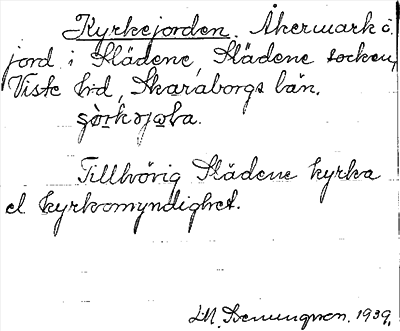 Kyrkejorden. Åkermark o
jord i Slädene, Slädene socken,
Viste hd, Skaraborgs län.
Tillhörig Slädene kyrka
el. kyrkomyndighet.
1939.